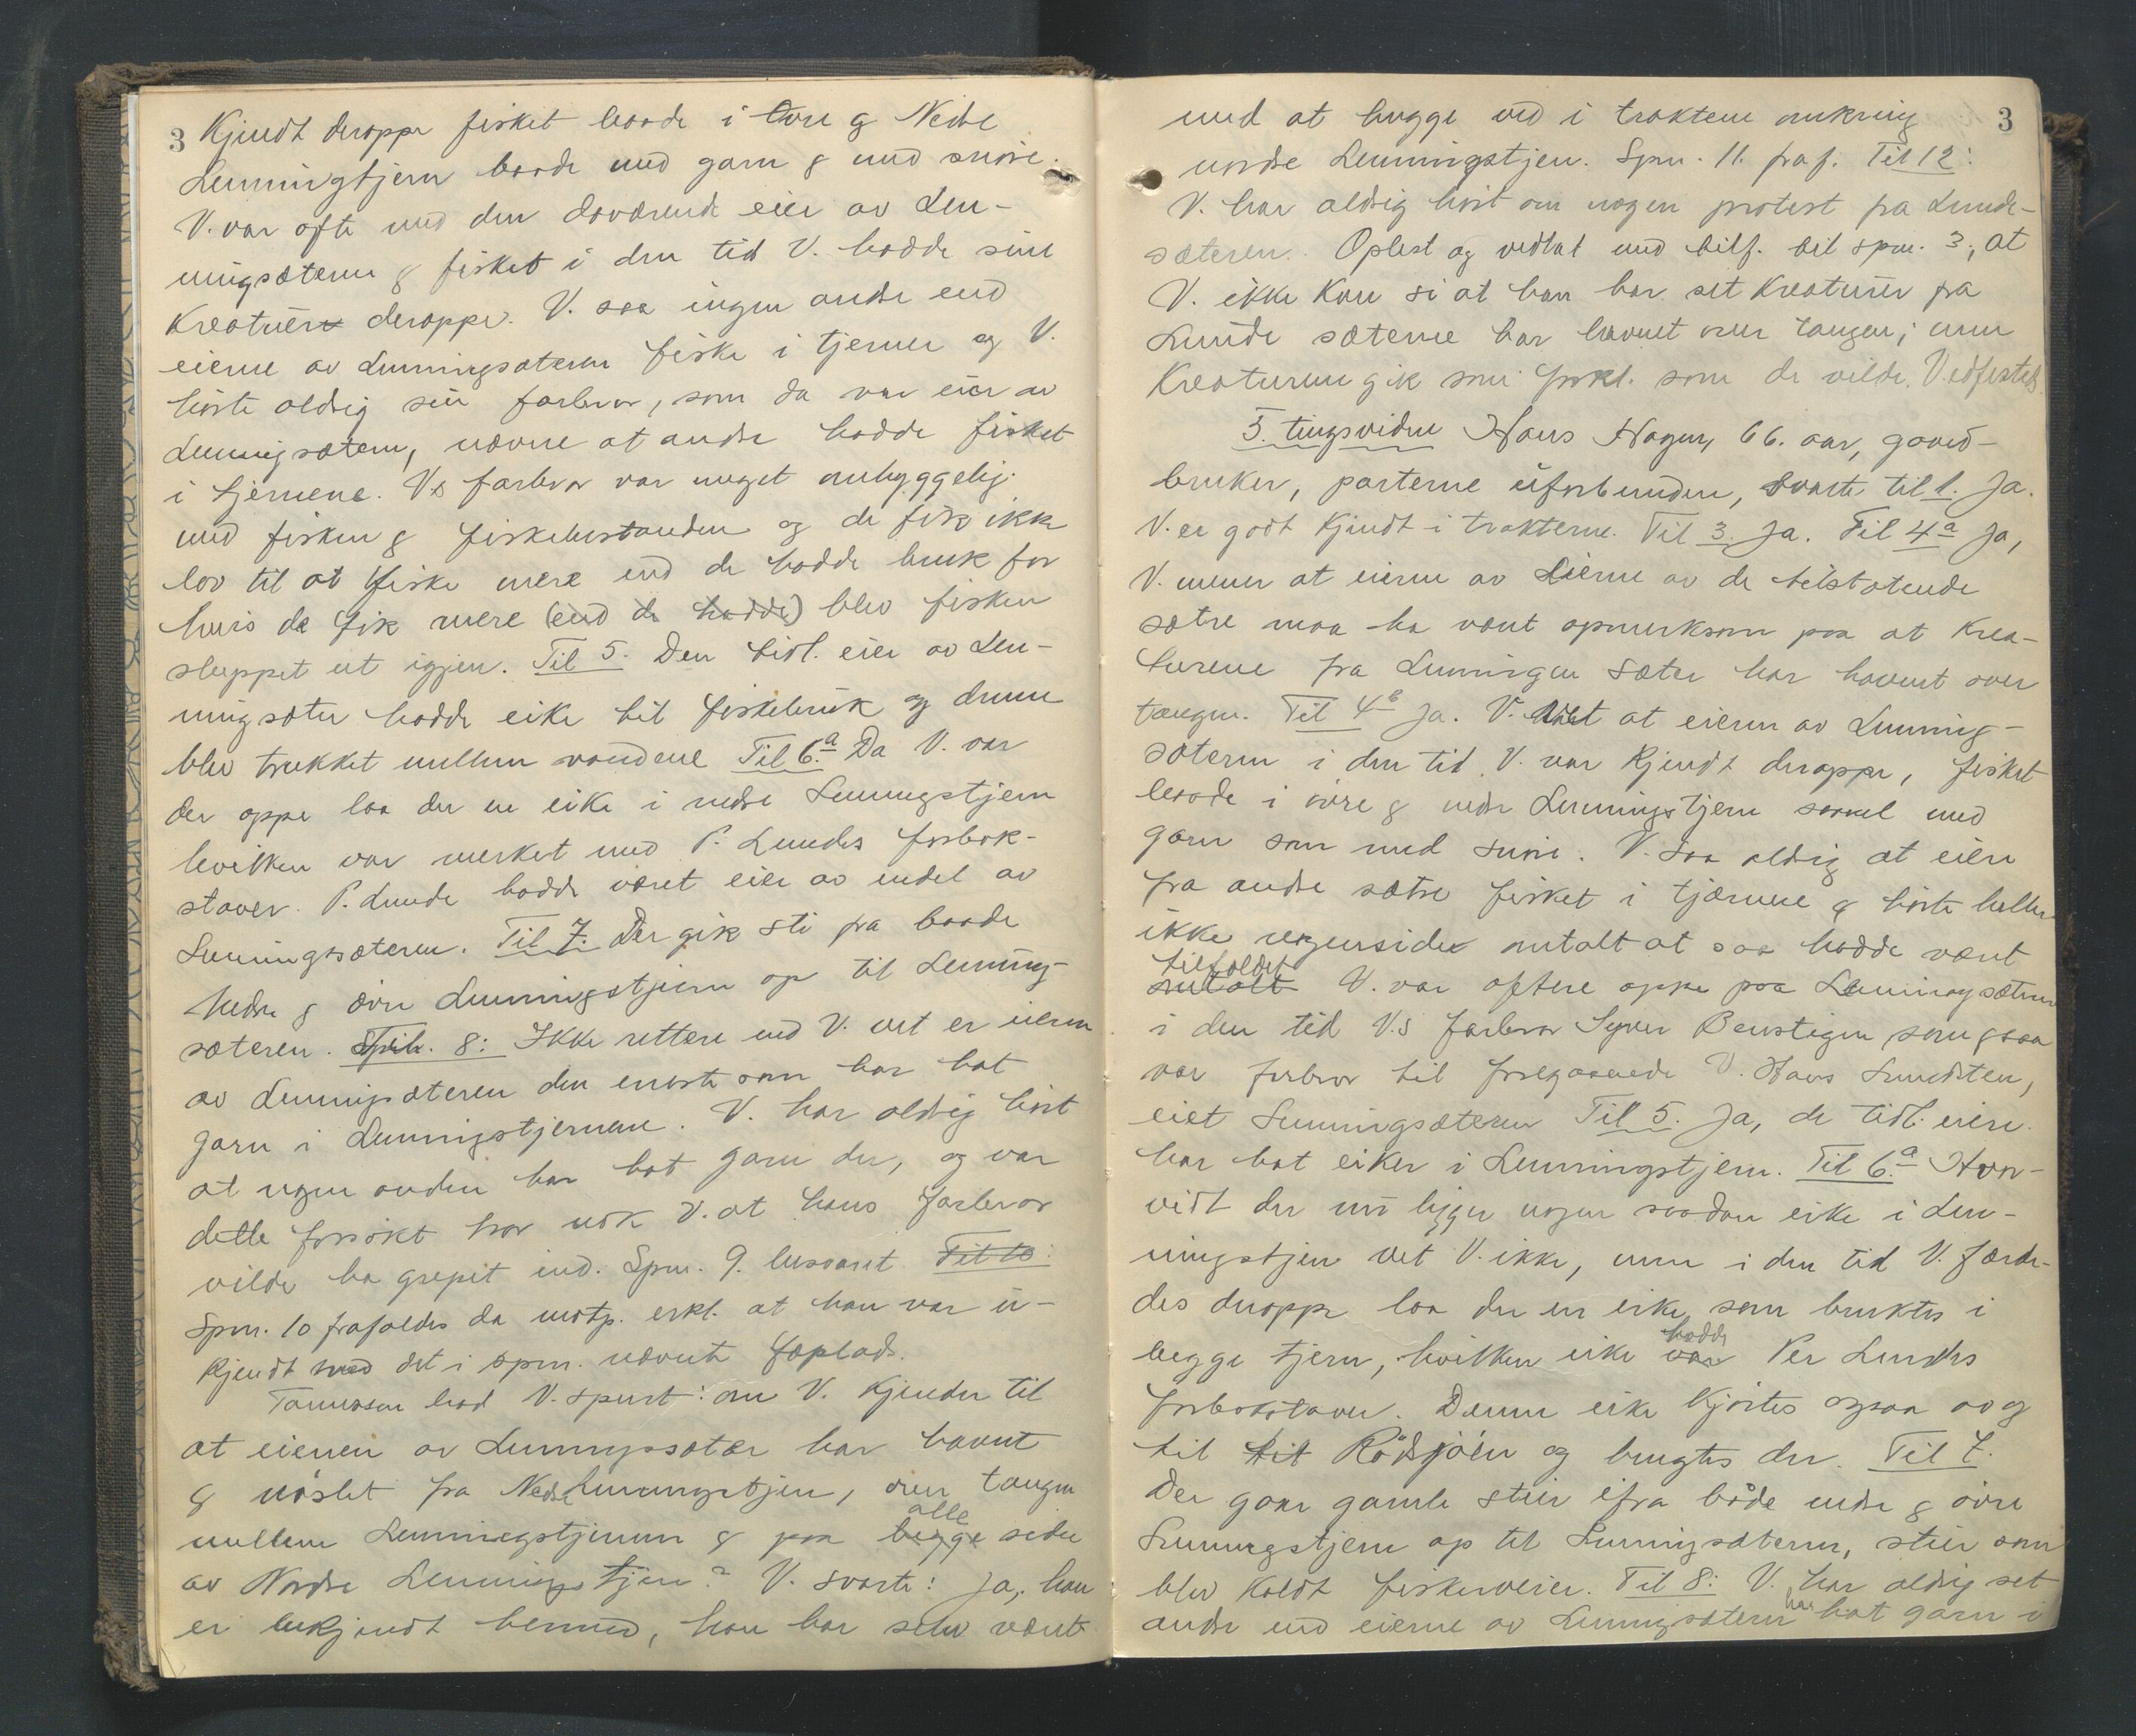 3 Kjendt deroppe fisket baade i Øvre & Nedre
Lenningstjern baade med garn & med snøre.
V. var ofte med den daværende eier av Len-
ningsæteren & fisket i den tid V. hadde sine
Kreaturer deroppe. V. saa ingen andre end
eierne av Lenningsæteren fiske i tjernene og V.
hørte aldrig sin farbror, som da var eier av
Lenningsætern, nævne at andre hadde fisket
i tjernene. V.s farbror var meget omhyggelig
med fisken & fiskebestanden og de fik ikke
lov til at fiske mere end de hadde bruk for
hvis de fik mere (end de hadde) blev fisken
sluppet ut igjen. Til 5. Den tidl. eier av Len-
ningsæter hadde eike til fiskebruk og denne
blev trukket mellem vandene Til 6.a Da V. var
der oppe laa der en eike i nedre Lenningstjern
hvilken var merket med P. Lundes forbok-
staver. P. Lunde hadde været eier av endel av
Lenningsæteren. Til 7. Der gik sti fra baade
Nedre & øvre Lenningstjern op til Lenning-
sæteren. Til. 8: Ikke rettere end V. vet er eieren
av Lenningsæteren den eneste som har hat
garn i Lenningstjernene. V. har aldrig hørt
at nogen anden har hat garn der, og var
dette forsøkt tror nok V. at hans farbror
vilde ha grepet ind. Spm. 9. besvaret Til 10:
Spm. 10 frafaldes da motp. erkl. at han var u-
kjendt med det i spm. nævnte fæplads.
Tommesen bad V. spurt: om V. kjender til
at eieren av Lenningssæter har havnet
& slaattet fra Nedre Lenningstjern, over tangen
alle
mellem Lenningstjernene & paa begge sider
av Nordre Lennings tjern? V. svarte: Ja, han
er bekjendt hermed, han har selv været
3
med at hugge ved i traktene omkring
nordre Lenningstjern. Spm. 11. fraf. Til 12:
V. har aldrig hørt om nogen protest fra Lunde-
sæteren. Oplest og vedtat med tilf. til spm. 3, at
V. ikke kan si at han har set kreaturer fra
Lunde sæterne har havnet over tangen; men
Kreaturene gik som forkl. som de vilde. Vedfestet
5. tingsvidne Hans Hagen, 66. aar, gaard-
bruker, parterne uforbunden, svarte til 1. Ja.
V. er godt kjendt i trakterne. Til 3. Ja. Til 4a Ja,
V. mener at eierne av eierne av de tilstøtende
sætre maa ha været opmerksom paa at Krea-
turene fra Lenningen sæter har havnet over
tangen. Til 4b Ja. V. vet at eieren av Lenning-
sæteren i den tid V. var kjendt deroppe, fisket
baade i øvre & nedre Lenningstjern saavel med
garn som med snøre. V. saa aldrig at eiere
fra andre sætre fisket i tjernene & hørte heller
ikke nogensinde omtalt at saa hadde været
tilfældet
omtalt V. var oftere oppe paa Lenningsæteren
i den tid V.s farbror Syver Benstigen som ogsaa
var farbror til foregaaende V. Hans Lundsten,
eiet Lenningsæteren Til 5. Ja, de tidl. eiere
har hat eiker i Lenningstjern. Til 6.a Hvor-
vidt der nu ligger nogen saadan eike i Len-
ningstjern vet V. ikke, men i den tid V. færde-
des deroppe laa der en eike som bruktes i
hadde
begge tjern, hvilken eike var Per Lundes
forbokstaver. Denne eike kjørtes ogsaa av og
til til Rødsjøen og brugtes der. Til 7.
Der gaar gamle stier ifra både nedre & øvre
Lenningstjern op til Lenningsæteren, stier som
blev kaldt fiskerveier. Til 8: V. har aldrig set
andre end eierne av Lenningsætern har hat garn i